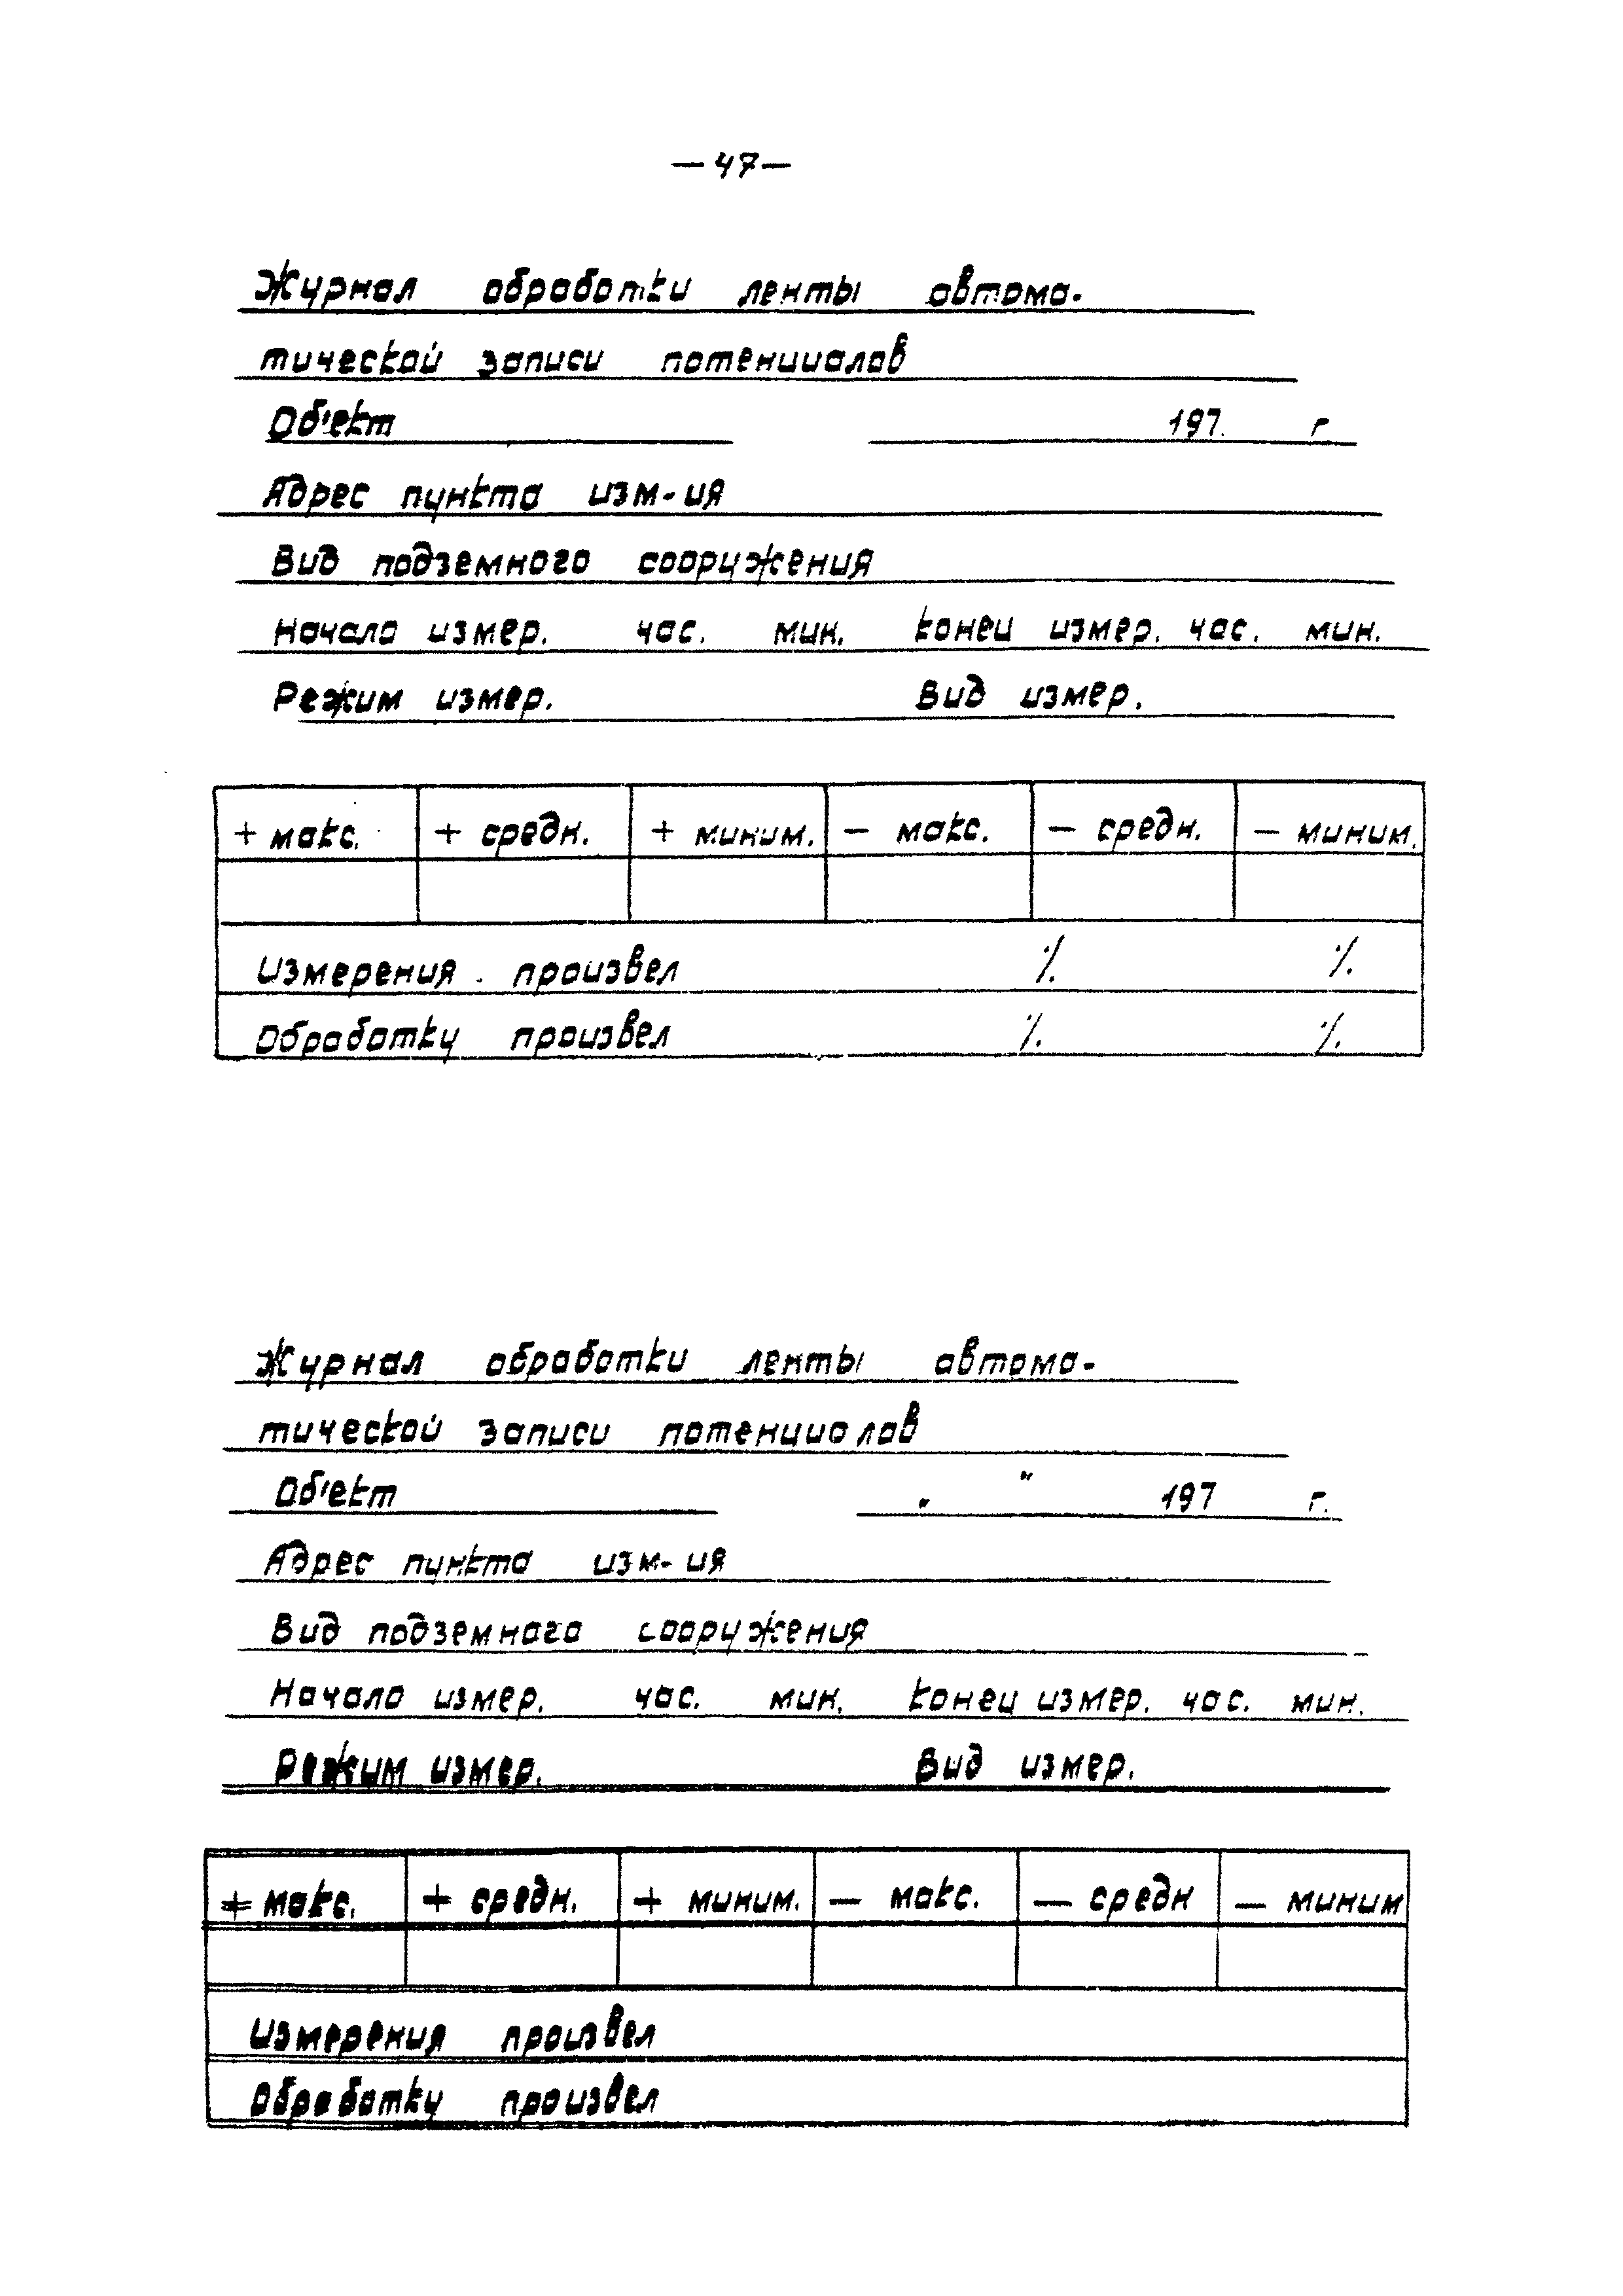 — 47 —
Журнал обработки ленты автома-
тической записи потенциалов
Об'ект 197. г
Адрес пункта изм-ия
Вид подземного сооружения
Начало измер. час. мин. Конец измер. час. мин.
Режим измер. Вид измер.
+ макс. + средн. + миним. — макс. — средн. — миним.
Измерения произвел % %
Обработку произвел % %
Журнал обработки ленты автома-
тической записи потенциалов
Об'ект „ " 197 г.
Адрес пункта изм-ия
Вид подземного сооружения
Начало измер. час. мин. Конец измер. час. мин.
Режим измер. Вид измер.
+ макс. + средн. + миним. — макс. — средн — миним
Измерения произвел
Обработку произвел